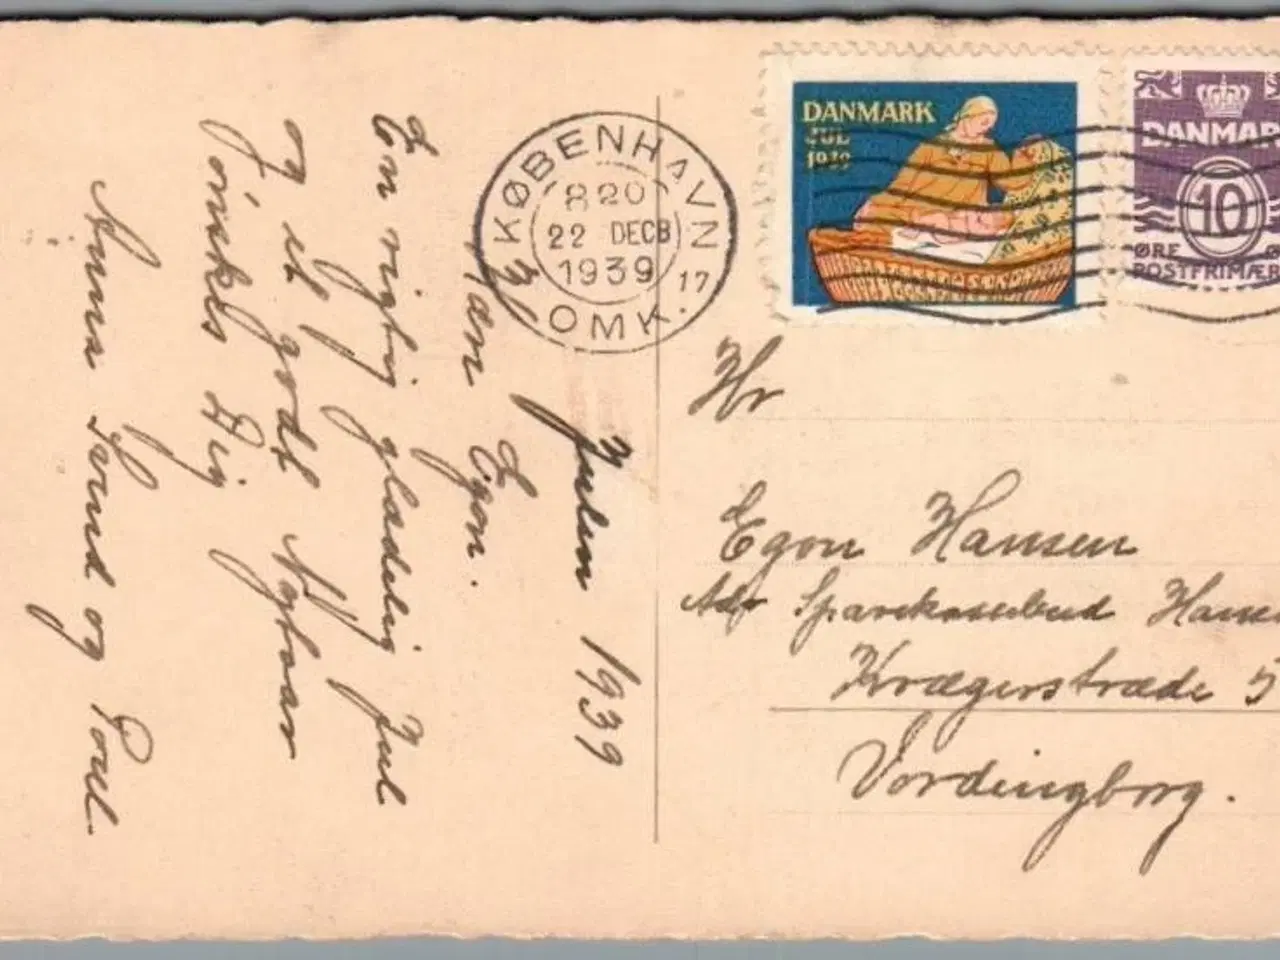 Julen 1939
Kære Egon.
En rigtig glædelig Jul
og et godt Nytaar
ønskes Dig
Svend og Poul.
KØBENHAVN
OMK.
8 20
22 DECB
1939
17
DANMARK
JUL
1939
DANMAR
10
ØRE
POSTFRIMÆR
Hr
Egon Hansen
Adr Sparekassebud Hanse
Krægerstræde 5
Vordingborg.